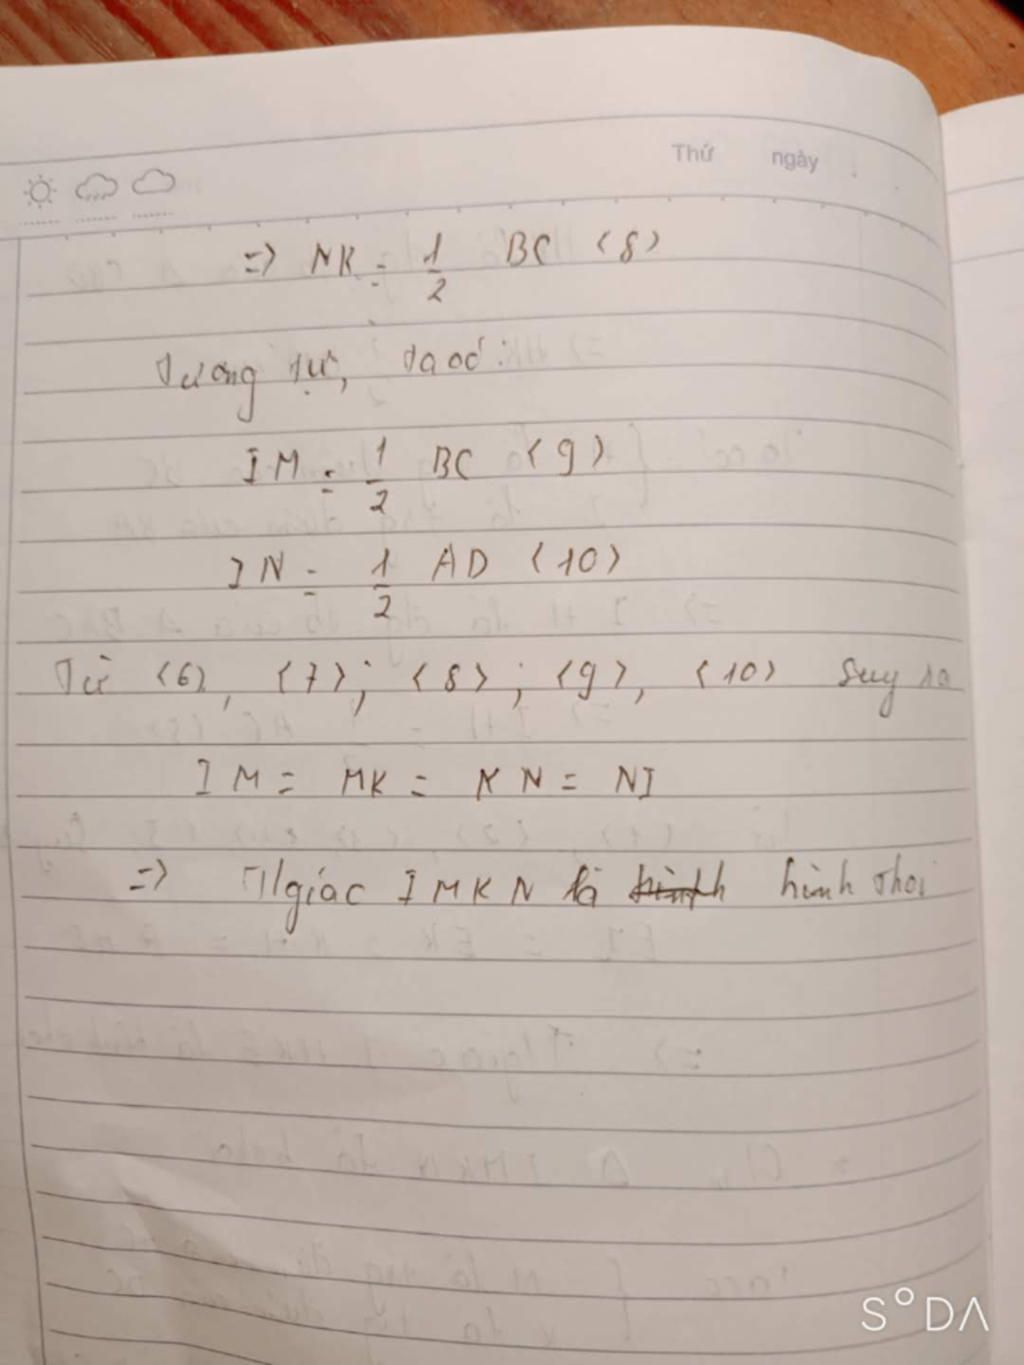 Thứ ngày
=> NK = 1/2 BC (8)
Tương tự, ta có:
IM = 1/2 BC (9)
IN = 1/2 AD (10)
Từ (6), (7); (8); (9), (10) suy ra
IM = MK = KN = NI
=> T/giác IMKN là hình thoi
SODA